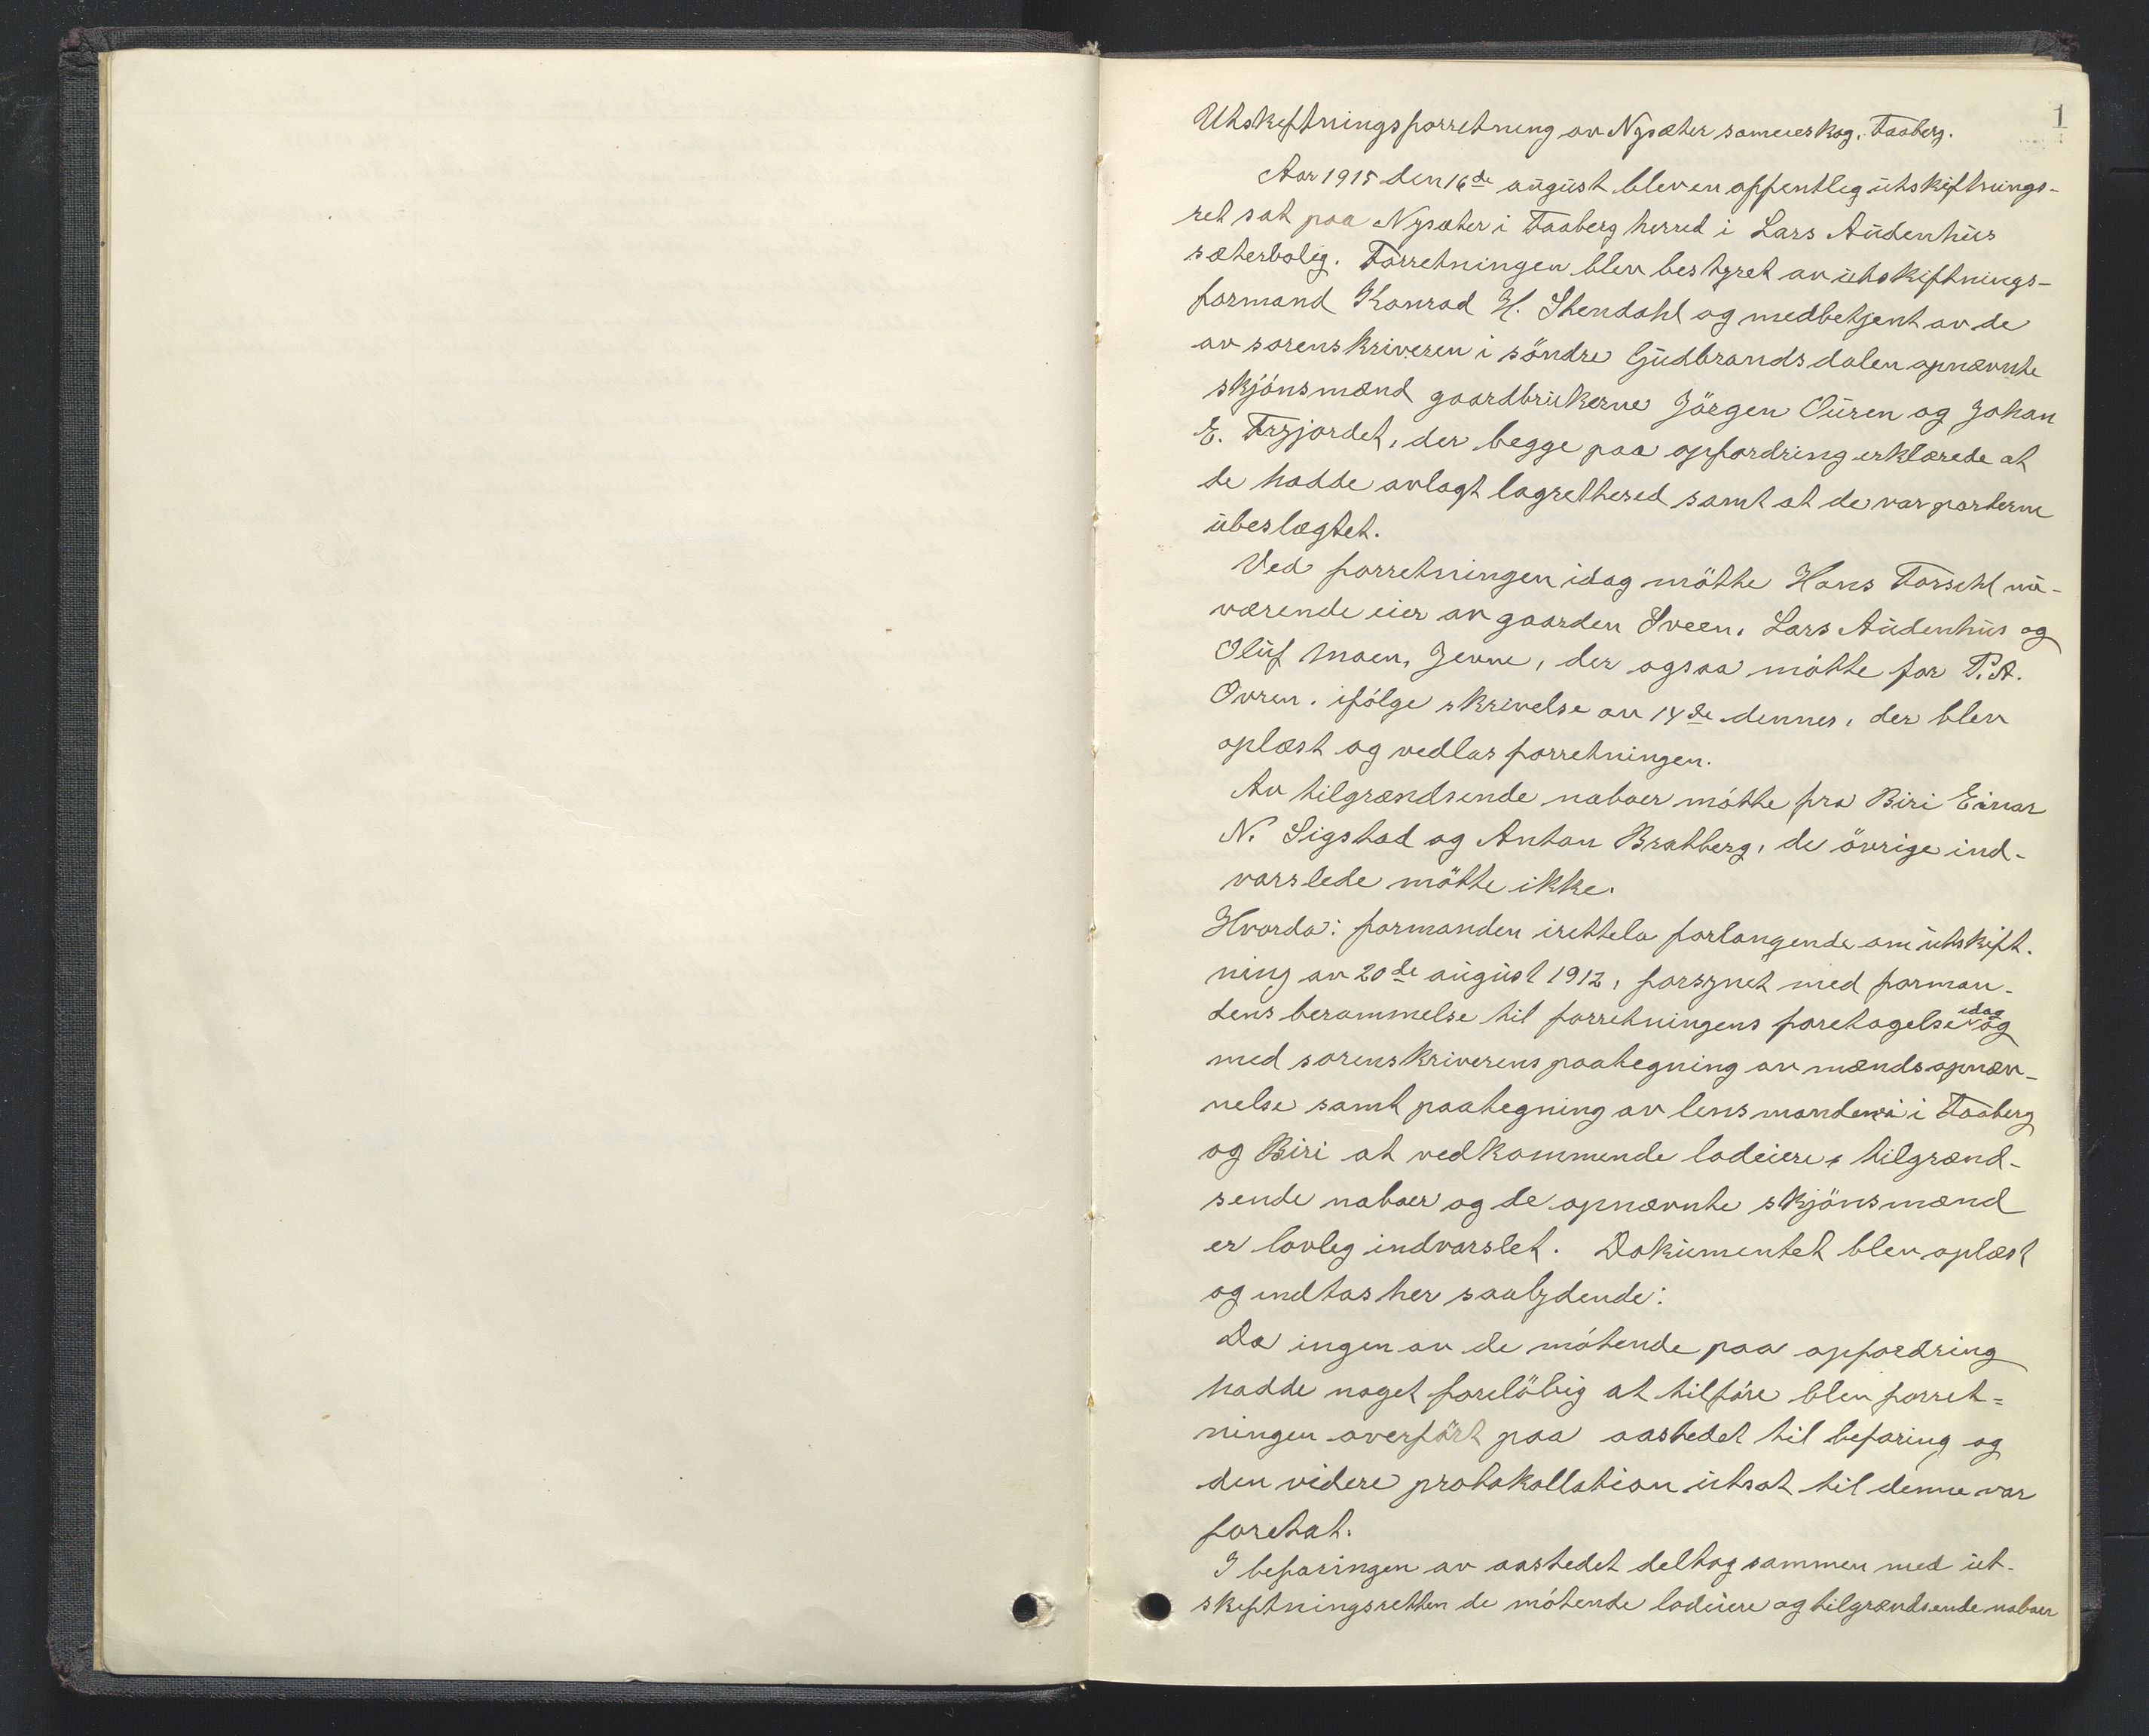 1
Utskiftningsforretning av Nysæter sameieskog, Faaberg.
Aar 1915 den 16de august blev en offentleg utskiftnings-
ret sat paa Nysæter i Faaberg herred i Lars Audenhus
sæterbolig. Forretningen blev bestyret av utskiftnings-
formand Konrad H. Stendahl og medbetjent av de
av sorenskriveren i söndre Gudbrandsdalen opnævnte
skjönsmænd gaardbrukerne Jörgen Ouren og Johan
E. Fryjordet, der begge paa opfordring erklærede at
de hadde avlagt lagretteed samt at de var parterne
ubeslægtet.
Ved forretningen idag mötte Hans Forseth nu-
værende eier av gaarden Sveen, Lars Audenhus og
Oluf Moen, Jevne, der ogsaa mötte for P. A.
Ovren, ifölge skrivelse av 14de dennes, der blev
oplæst og vedlas forretningen.
Av tilgrændsende naboer mötte fra Biri Einar
N. Sigstad og Anton Bratberg, de övrige ind-
varslede mötte ikke.
Hvorda: formanden irettela forlangende om utskift-
ning av 20de august 1912, forsynet med forman-
dens berammelse til forretningens foretagelse idag og
med sorenskriverens paategning av mændsopnæv-
nelse samt paategning av lensmændene i Faaberg
og Biri at vedkommende lodeiere, tilgrænd-
sende naboer og de opnævnte skjönsmænd
er lovleg indvarslet. Dokumentet blev oplæst
og indtas her saalydende:
Da ingen av de mötende paa opfordring
hadde noget forelöbig at tilföre blev forret-
ningen overfört paa aastedet til befaring og
den videre protokollation utsat til denne var
foretat.
I befaringen av aastedet deltog sammen med ut-
skiftningsretten de mötende lodeiere og tilgrændsende naboer